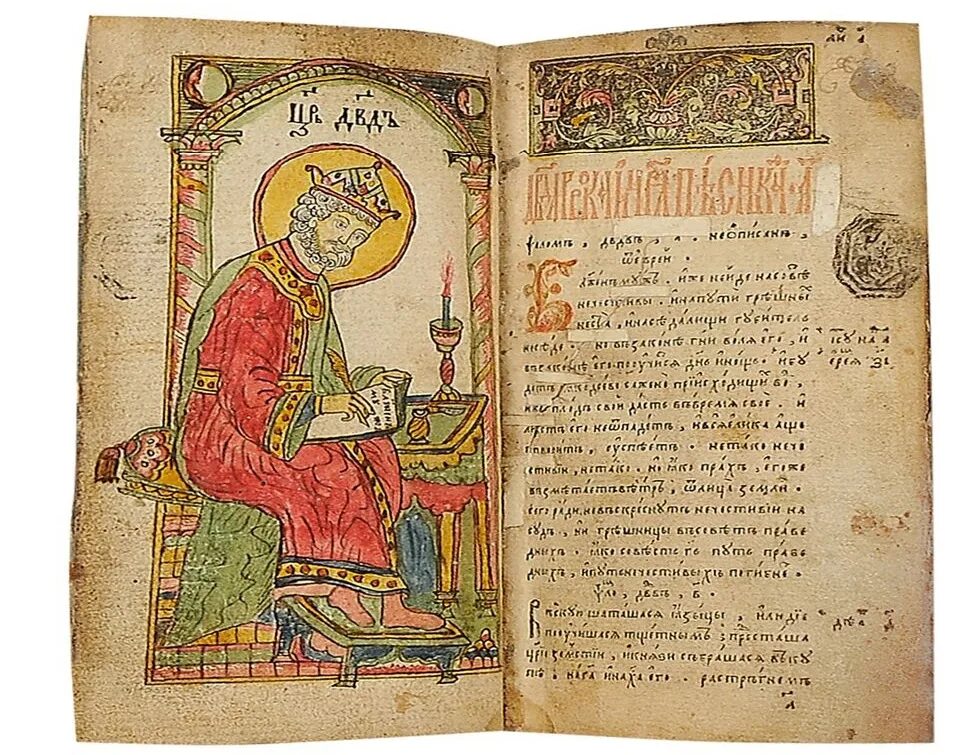 ЦРЬ ДВДЪ
ДВДА ПРРОКА И ЦРѦ ПѢСНЬ КАѲ. А҃
ѱаломъ, двдвъ, а҃. неѡписанъ,
ѿ еврей.
Блаженъ мужъ. иже нейде на совѣтъ
нечестивы. и на пути грѣшны
не ста, и на сѣдалищи губитель
не сѣде. но в законе гни воля его, и
в законе его поучится днь и нощь. и бу
детъ яко древо сажено при исходищи во,
иже плодъ свой дастъ въ время свое. и
листъ его не ѿпадетъ, и вся елика аще
творитъ, ѹспѣетъ. не тако нече
стивїи, не тако. но ꙗко прахъ, егоже
възметаетъ вѣтръ, ѿ лица земли.
сего ради не въскреснутъ нечестивїи на
судъ, ни грѣшницы въ совѣтъ праве
дныхъ. ꙗко совѣсть гь путь праве
дныхъ, и путь нечестивыхъ погибне.
ѱло, двдвъ, в҃.
Въскую шаташася ꙗзыцы, и людїе
поучишася тщетнымъ. предсташа
црїе земстїи, и князи събрашася въку
пѣ, на га и на ха его. растръгнемъ